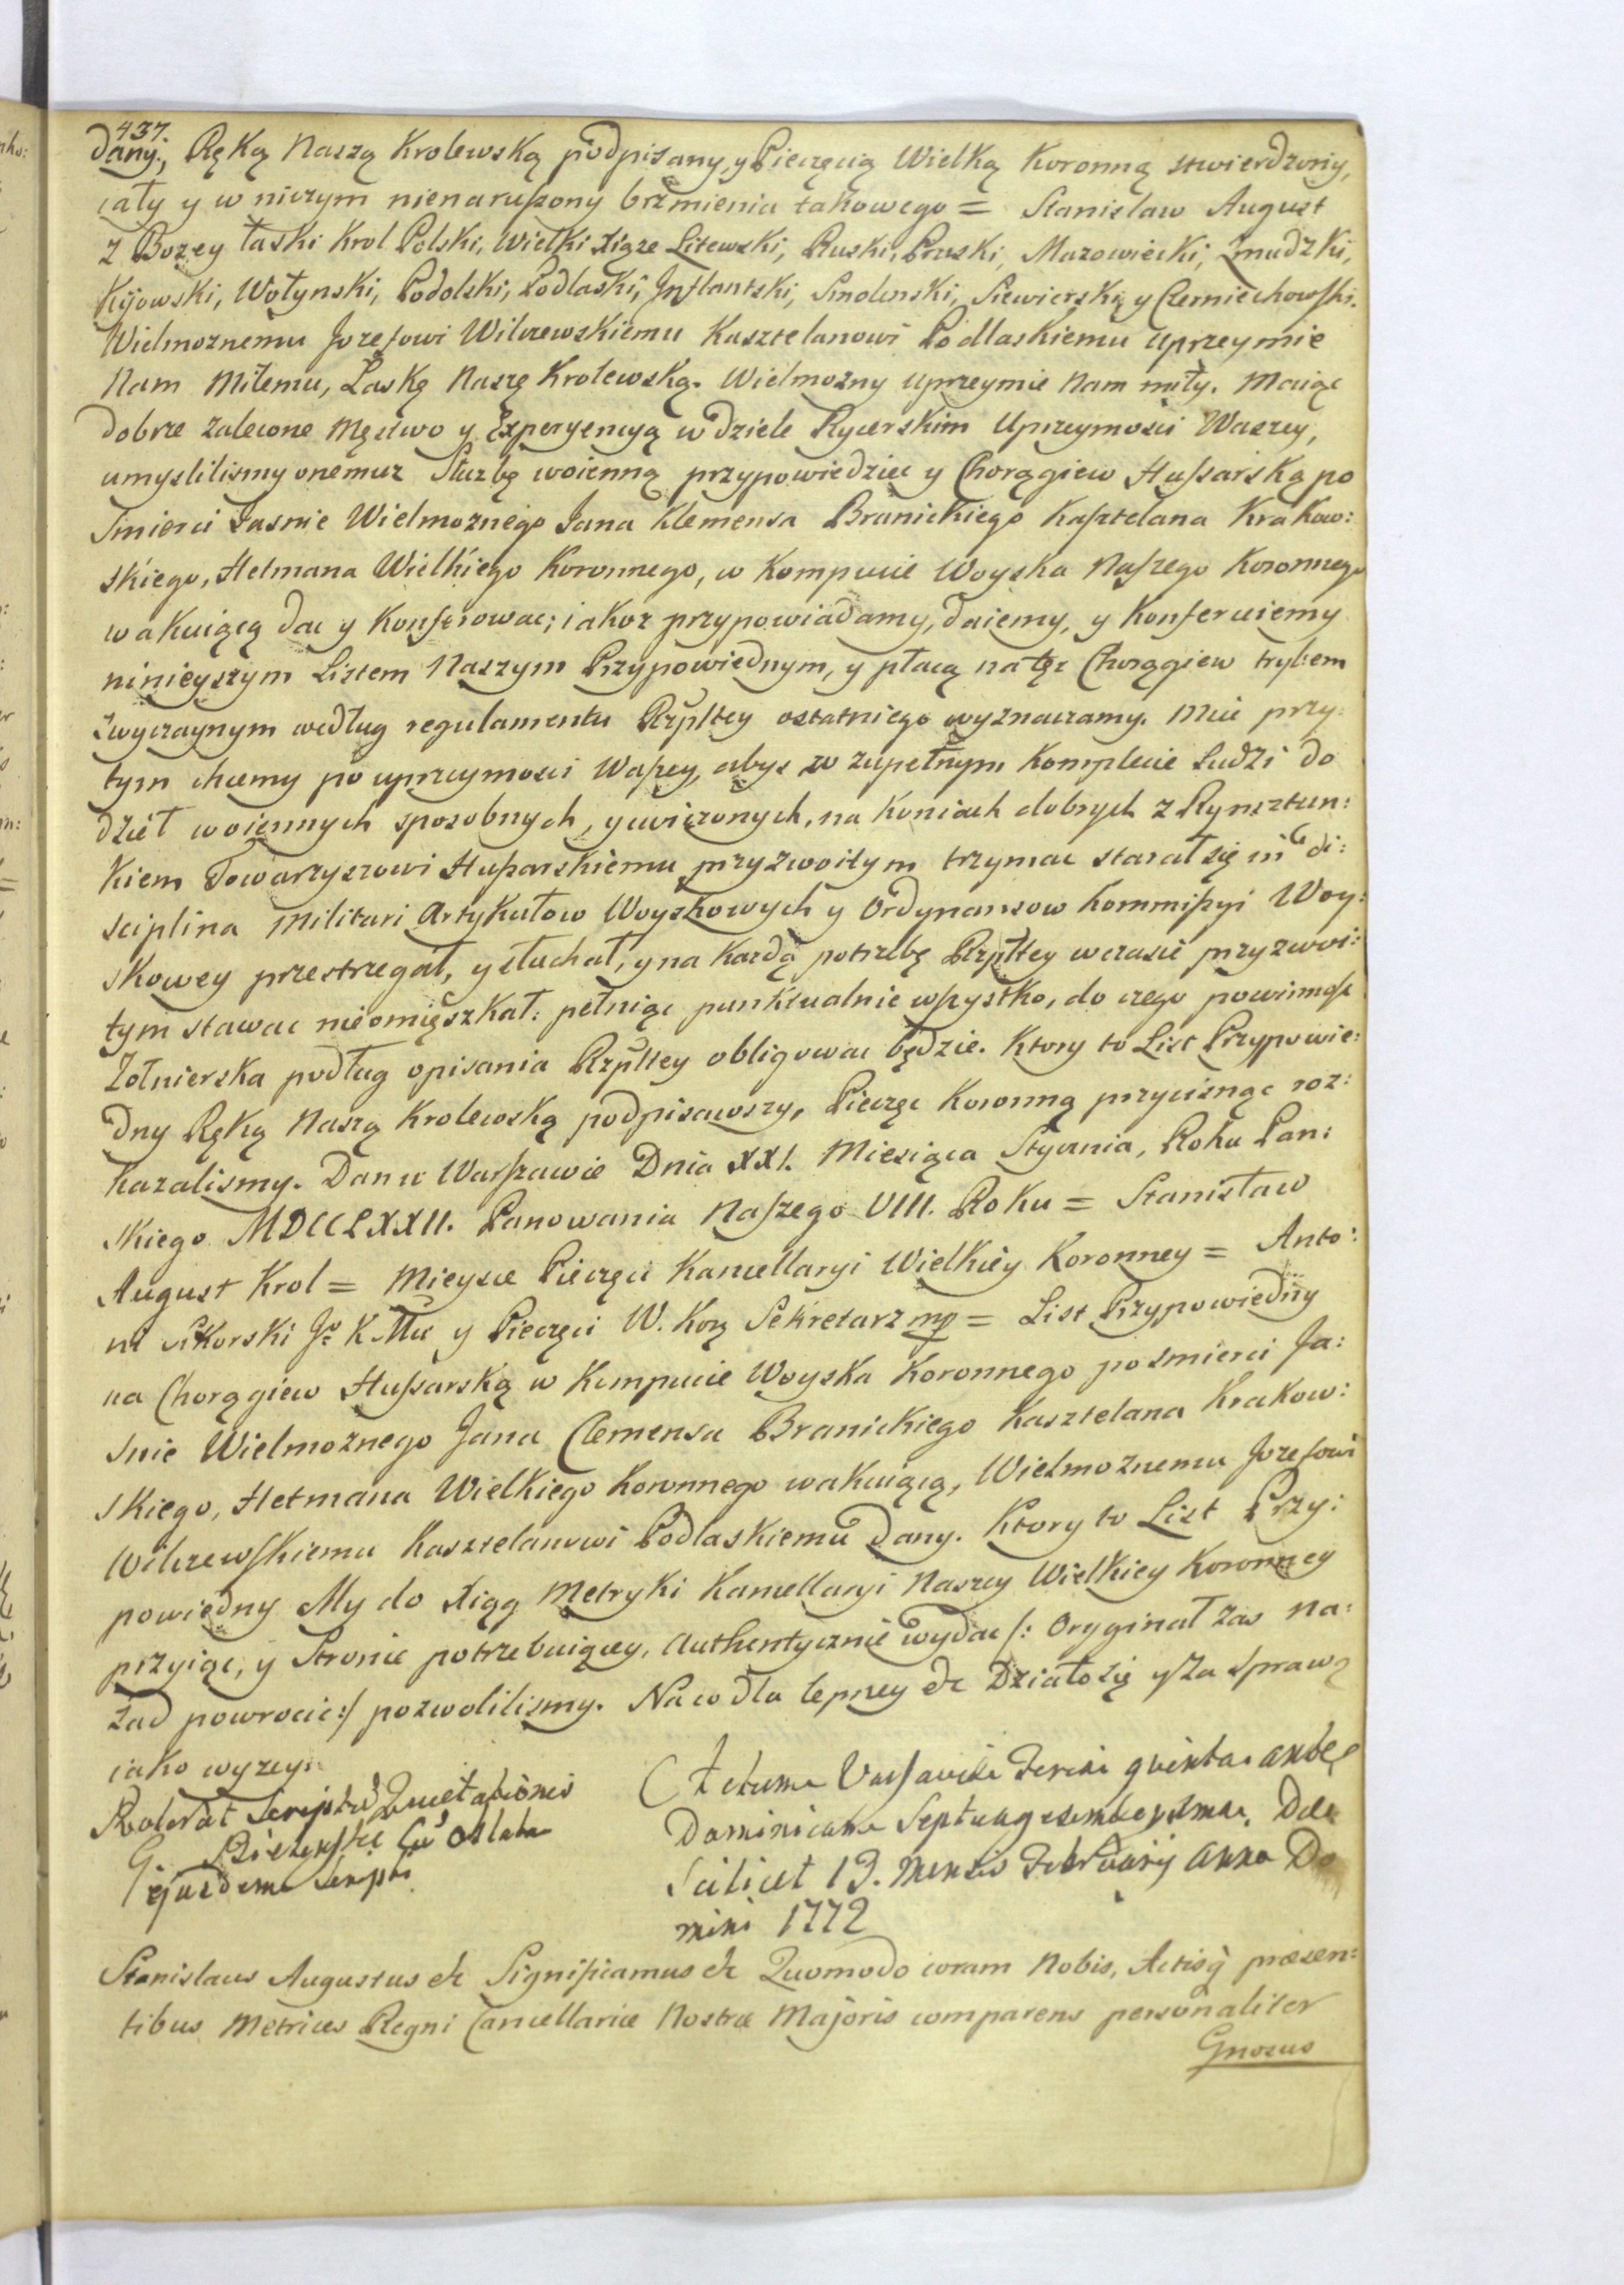 437.
dany, Ręką Naszą Krolewską podpisany, y Pieczęcią Wielką Koronną stwierdzony,
cały y w niczym nienaruszony brzmienia takowego = Stanislaw August
z Bozey łaski Krol Polski, Wielki Xiąze Litewski, Ruski, Pruski, Mazowiecki, Zmudzki,
Kijowski, Wołynski, Podolski, Podlaski, Inflantski, Smolenski, Siewierski y Czerniechowski.
Wielmoznemu Jozefowi Wilczewskiemu Kasztelanowi Podlaskiemu Uprzeymie
Nam Miłemu, Łaskę Naszę Krolewską. Wielmozny Uprzeymie Nam miły. Maiąc
dobrze zalecone Męstwo y Experyencyą w dziele Rycerskim Uprzeymosci Waszey,
umyslilismy onemuz Słuzbę woienną przypowiedziec y Chorągiew Hussarską po
Smierci Jasnie Wielmoznego Jana Klemensa Branickiego Kasztelana Krakow:
skiego, Hetmana Wielkiego Koronnego, w Kompucie Woyska Naszego Koronnego
wakuiącą dac y Konferowac; iakoz przypowiadamy, daiemy, y Konferuiemy
ninieyszym Listem Naszym Przypowiednym, y płacą na tęz Chorągiew trybem
zwyczaynym według regulamentu Rzpltey ostatniego wyznaczamy. Miec przy:
tym chcemy po uprzeymosci Waszey, abys w zupełnym Komplecie Ludzi do
dzieł woiennych sposobnych, y cwiczonych, na Koniach dobrych z Rynsztun:
kiem Towarzyszowi Hussarskiemu przyzwoitym trzymac starał się in di:
sciplina Militari Artykułow Woyskowych y Ordynansow Kommissyi Woy:
skowey przestrzegał, y słuchał, y na Kazdą potrzebę Rzpltey wczasie przyzwoi:
tym stawac nieomięszkał: pełniąc punktualnie wszystko, do czego powinnosc
Zołnierska podług opisania Rzpltey obligowac będzie. Ktory to List Przypowie:
dny Ręką Naszą Krolewską podpisawszy, Pieczęc Koronną przycisnąc roz:
kazalismy. Dan w Warszawie Dnia XXI. Miesiąca Stycznia, Roku Pan:
skiego MDCCLXXII. Panowania Naszego VIII. Roku = Stanisław
August Krol = Mieysce Pieczęci Kancellaryi Wielkiey Koronney = Anto:
ni Sikorski Jo K Mci y Pieczęci W. Kor Sekretarz mp = List Przypowiedny
na Chorągiew Hussarską w Kompucie Woyska Koronnego po smierci Ja:
snie Wielmoznego Jana Clemensa Branickiego Kasztelana Krakow:
skiego, Hetmana Wielkiego Koronnego wakuiącą, Wielmoznemu Jozefowi
Wilczewskiemu Kasztelanowi Podlaskiemu dany. Ktory to List Przy:
powiedny My do Xiąg Metryki Kancellaryi Naszey Wielkiey Koronney
przyiąc, y Stronie potrzebuiącey, Authentycznie wydac /: Oryginał zas na:
zad powrocic :/ pozwolilismy. Na co dla lepszey &c Działo się y Za sprawą
iako wyzey.
Roborat Scripti Quietationis
G. Cu Oblata
ejusdem Scripti
Actum Varsaviæ Feria quinta ante
Dominicam Septuagesimam Die
Scilicet 13. mensis Februarij Anno Do
mini 1772
Stanislaus Augustus &c Significamus &c Quomodo coram Nobis, Actisq præsen:
tibus Metrices Regni Cancellariæ Nostræ Majoris comparens personaliter
Gnosus